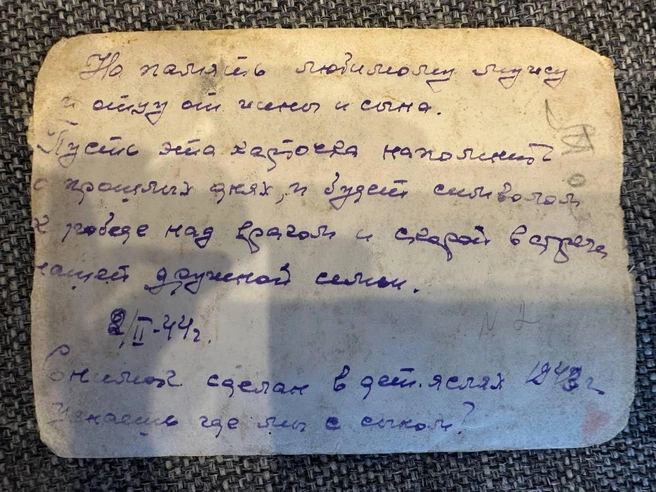 На память любимому мужу
и отцу от жены и сына.
Пусть эта карточка напомнит
о прошлых днях, и будет символом
к победе над врагом и скорой встречи
нашей дружной семьи.
2/II-44г.
N 2
Снимок сделан в дет. яслях 1943 г
Узнаешь где мы с сыном?